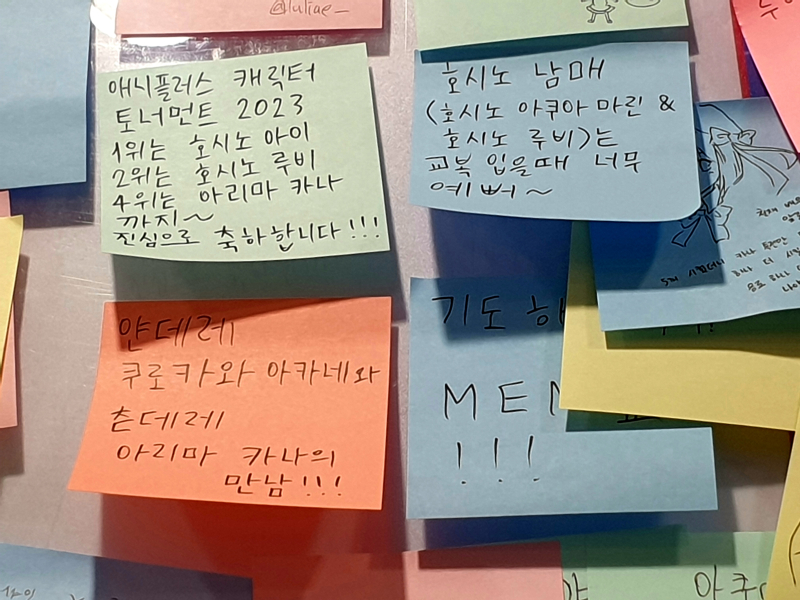 @luliae_
애니플러스 캐릭터
토너먼트 2023
1위는 호시노 아이
2위는 호시노 루비
4위는 아리마 카나
까지~
진심으로 축하합니다!!!
호시노 남매
(호시노 아쿠아마린 &
호시노 루비)는
교복 입을때 너무
예뻐~
얀데레
쿠로카와 아카네와
츤데레
아리마 카나의
만남!!!
기도하
MEM
!!!
아쿠